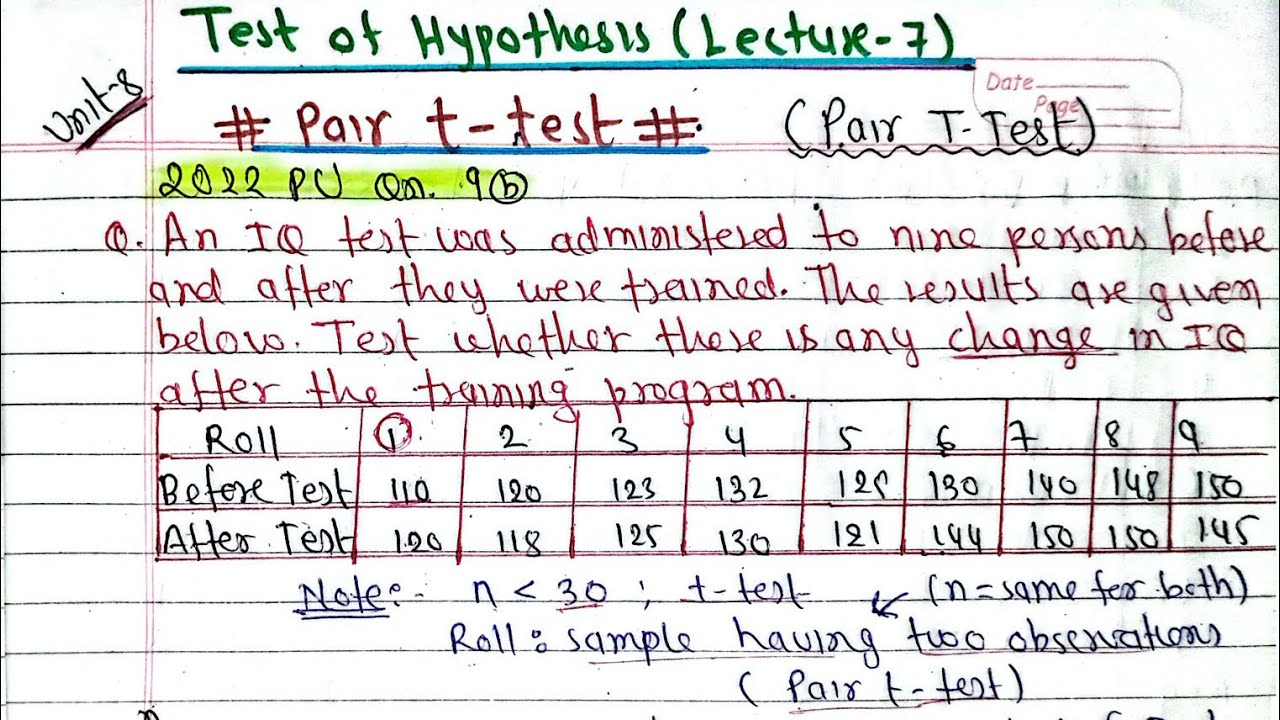 Test of Hypothesis (Lecture-7)
Date
Page
Unit-8
# Pair t-test #
(Pair T-Test)
2022 PU Qn. 9(b)
Q. An IQ test was administered to nine persons before
and after they were trained. The results are given
below. Test whether there is any change in IQ
after the training program.
Roll 1 2 3 4 5 6 7 8 9
Before Test 110 120 123 132 125 130 140 148 150
After Test 120 118 125 130 121 144 150 150 145
Note:- n < 30 ; t-test (n=same for both)
Roll: sample having two observations
(Pair t-test)